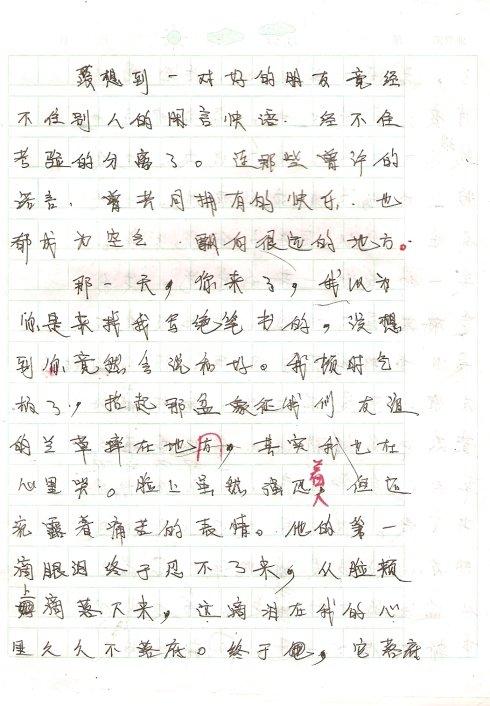 没想到一对好的朋友竟经
不住别人的闲言快语.经不住
考验的分离了。连那些曾许的
诺言.曾共同拥有的快乐.也
都成为空气 飘向很远的地方。
那一天,你来了,我以为
你是来找我写绝笔书的,没想
到你竟然会说和好。我顿时气
极了,抬起那盆象征我们友谊
的兰草摔在地上,其实我也在
心里哭。脸上虽然强忍着 但还
充露着痛苦的表情。他的第一
滴眼泪终于忍不了来,从脸颊
上滴落下来,这滴泪在我的心
里久久不落底。终于,它落底